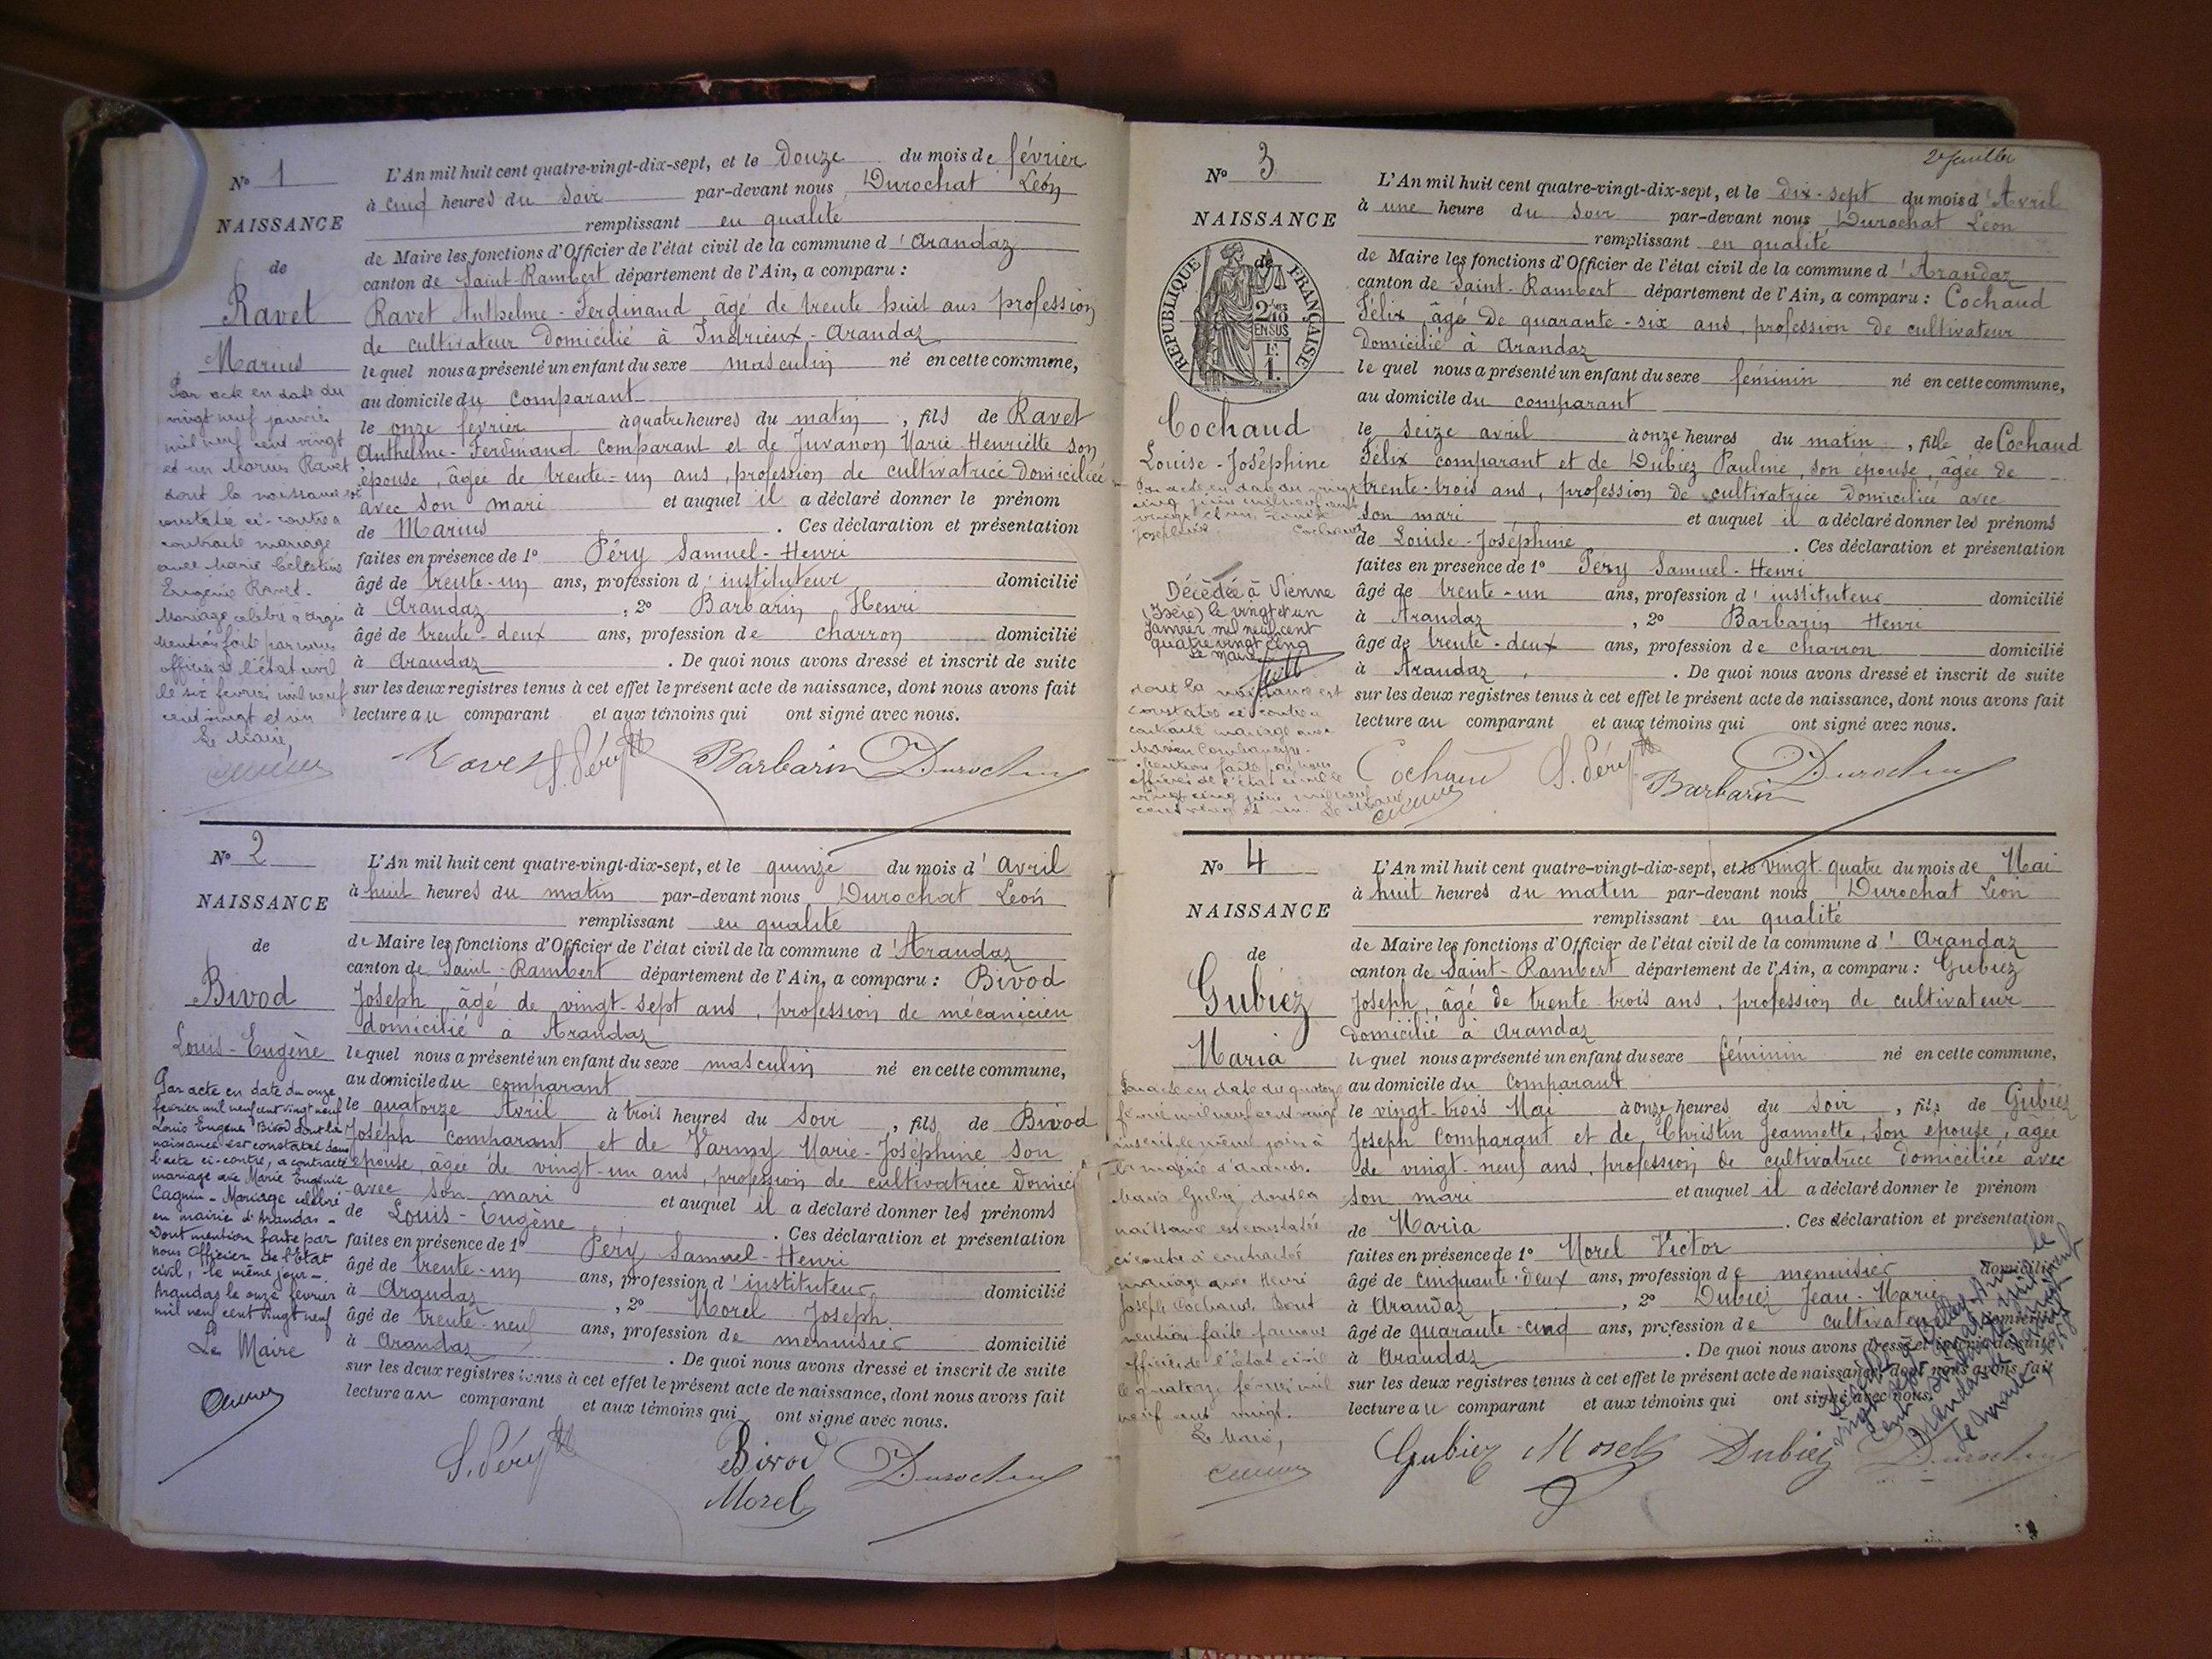 No 1
NAISSANCE
de
Ravet
Marius
Par acte en date du
vingt neuf janvier
mil neuf cent vingt
et un Marius Ravet
dont la naissance est
constatée ci-contre a
contracté mariage
avec Marie Célestine
Eugénie Ravet.
Mariage célébré à Argis
Mention faite par nous
officier de l'état civil
le six février mil neuf
cent vingt et un
Le Maire,
L'An mil huit cent quatre-vingt-dix-sept, et le douze du mois de février
à cinq heures du soir par-devant nous Durochat Léon
remplissant en qualité
de Maire les fonctions d'Officier de l'état civil de la commune d'Arandaz
canton de Saint-Rambert département de l'Ain, a comparu :
Ravet Anthelme-Ferdinand, âgé de trente huit ans profession
de cultivateur domicilié à Indrieux-Arandaz
lequel nous a présenté un enfant du sexe masculin né en cette commune,
au domicile du comparant
le onze février à quatre heures du matin, fils de Ravet
Anthelme-Ferdinand comparant et de Juvanon Marie-Henriette son
épouse, âgée de trente-un ans, profession de cultivatrice domiciliée
avec son mari et auquel il a déclaré donner le prénom
de Marius. Ces déclaration et présentation
faites en présence de 1o Péry Samuel-Henri
âgé de trente-un ans, profession d'instituteur domicilié
à Arandaz, 2o Barbarin Henri
âgé de trente-deux ans, profession de charron domicilié
à Arandaz. De quoi nous avons dressé et inscrit de suite
sur les deux registres tenus à cet effet le présent acte de naissance, dont nous avons fait
lecture au comparant et aux témoins qui ont signé avec nous.
Ravet S. Péry Barbarin Durochat
No 2
NAISSANCE
de
Bivod
Louis-Eugène
Par acte en date du onze
février mil neuf cent vingt neuf
Louis Eugène Bivod dont la
naissance est constatée dans
l'acte ci-contre, a contracté
mariage avec Marie Eugénie
Cagnin - Mariage célébré
en mairie d'Arandas -
Dont mention faite par
nous Officier de l'Etat
civil, le même jour -
Arandas le onze février
mil neuf cent vingt neuf
Le Maire
L'An mil huit cent quatre-vingt-dix-sept, et le quinze du mois d'Avril
à huit heures du matin par-devant nous Durochat Léon
remplissant en qualité
de Maire les fonctions d'Officier de l'état civil de la commune d'Arandaz
canton de Saint-Rambert département de l'Ain, a comparu : Bivod
Joseph, âgé de vingt-sept ans, profession de mécanicien
domicilié à Arandaz
lequel nous a présenté un enfant du sexe masculin né en cette commune,
au domicile du comparant
le quatorze Avril à trois heures du soir, fils de Bivod
Joseph comparant et de Varmy Marie-Joséphine son
épouse, âgée de vingt-un ans, profession de cultivatrice domici
avec son mari et auquel il a déclaré donner les prénoms
de Louis-Eugène. Ces déclaration et présentation
faites en présence de 1o Péry Samuel-Henri
âgé de trente-un ans, profession d'instituteur domicilié
à Arandaz, 2o Morel Joseph
âgé de trente-neuf ans, profession de menuisier domicilié
à Arandaz. De quoi nous avons dressé et inscrit de suite
sur les deux registres tenus à cet effet le présent acte de naissance, dont nous avons fait
lecture au comparant et aux témoins qui ont signé avec nous.
S. Péry Bivod Durochat
Morel
2e feuillet
No 3
NAISSANCE
de
REPUBLIQUE FRANÇAISE
2/10
EN SUS
1F.
Cochaud
Louise-Joséphine
Par acte en date du vingt
cinq juin mil neuf cent
vingt et un, Louise
Joséphine Cochaud
Décédée à Vienne
(Isère) le vingt et un
Janvier mil neuf cent
quatre vingt cinq
Le Maire
dont la naissance est
constatée ci-contre a
contracté mariage avec
Mention faite par nous
officier de l'état civil le
vingt cinq juin mil neuf
cent vingt et un. Le Maire
L'An mil huit cent quatre-vingt-dix-sept, et le dix-sept du mois d'Avril
à une heure du soir par-devant nous Durochat Léon
remplissant en qualité
de Maire les fonctions d'Officier de l'état civil de la commune d'Arandaz
canton de Saint-Rambert département de l'Ain, a comparu : Cochaud
Félix, âgé de quarante-six ans, profession de cultivateur
domicilié à Arandaz
lequel nous a présenté un enfant du sexe féminin né en cette commune,
au domicile du comparant
le seize avril à onze heures du matin, fille de Cochaud
Félix comparant et de Dubiez Pauline, son épouse, âgée de
trente-trois ans, profession de cultivatrice domiciliée avec
son mari et auquel il a déclaré donner les prénoms
de Louise-Joséphine. Ces déclaration et présentation
faites en présence de 1o Péry Samuel-Henri
âgé de trente-un ans, profession d'instituteur domicilié
à Arandaz, 2o Barbarin Henri
âgé de trente-deux ans, profession de charron domicilié
à Arandaz. De quoi nous avons dressé et inscrit de suite
sur les deux registres tenus à cet effet le présent acte de naissance, dont nous avons fait
lecture au comparant et aux témoins qui ont signé avec nous.
Cochaud S. Péry Barbarin Durochat
No 4
NAISSANCE
de
Gubiez
Maria
Par acte en date du quatorze
février mil neuf cent vingt
inscrit le même jour à
la mairie d'Arandas.
Maria Gubiez dont la
naissance est constatée
ci contre a contracté
mariage avec Henri
Joseph Cochaud. Dont
mention faite par nous
officier de l'état civil
le quatorze février mil
neuf cent vingt.
Le Maire,
L'An mil huit cent quatre-vingt-dix-sept, et le vingt quatre du mois de Mai
à huit heures du matin par-devant nous Durochat Léon
remplissant en qualité
de Maire les fonctions d'Officier de l'état civil de la commune d'Arandaz
canton de Saint-Rambert département de l'Ain, a comparu : Gubiez
Joseph, âgé de trente-trois ans, profession de cultivateur
domicilié à Arandaz
lequel nous a présenté un enfant du sexe féminin né en cette commune,
au domicile du comparant
le vingt-trois Mai à onze heures du soir, fils de Gubiez
Joseph comparant et de Christin Jeannette, son épouse, âgée
de vingt-neuf ans, profession de cultivatrice domiciliée avec
son mari et auquel il a déclaré donner le prénom
de Maria. Ces déclaration et présentation
faites en présence de 1o Morel Victor
âgé de cinquante-deux ans, profession de menuisier domicilié
à Arandaz, 2o Dubiez Jean-Marie
âgé de quarante-cinq ans, profession de cultivateur domicilié
à Arandaz. De quoi nous avons dressé et inscrit de suite
sur les deux registres tenus à cet effet le présent acte de naissance, dont nous avons fait
lecture au comparant et aux témoins qui ont signé avec nous.
Gubiez Morel Dubiez Durochat
Le Maire